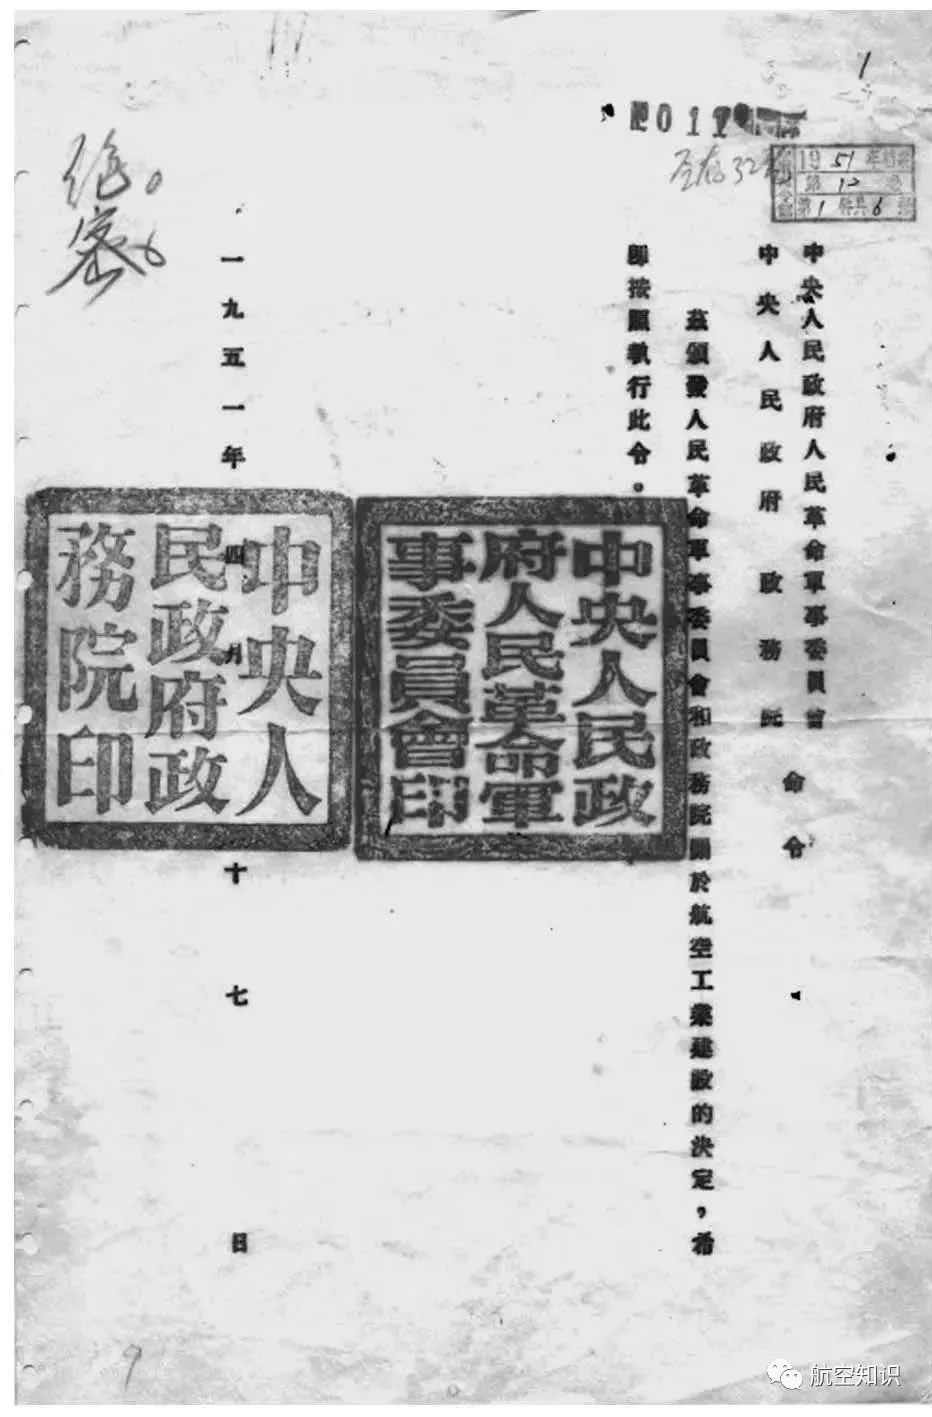 1
011
19 51 年
第 12
第 1 件共 6
中央人民政府人民革命軍事委員會
中央人民政府政務院
命令
茲頒發人民革命軍事委員會和政務院關於航空工業建設的決定，希
卽按照執行此令。
中央人民政
府人民革命軍
事委員會印
中央人
民政府政
務院印
一九五一年四月十七日
绝密
航空知识